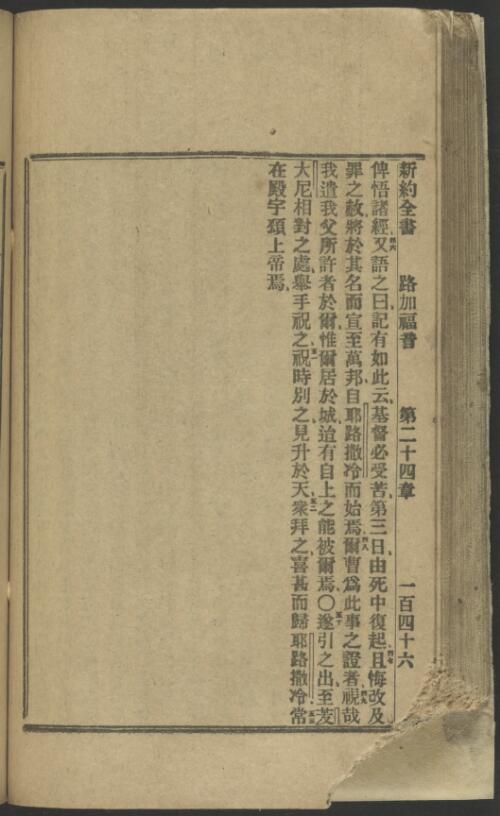 新約全書 路加福音 第二十四章 一百四十六
俾悟諸經、四六又語之曰、記有如此云、基督必受苦、第三日由死中復起、四七且悔改及
罪之赦、將於其名而宣至萬邦、自耶路撒冷而始焉、四八爾曹爲此事之證者、四九視哉
我遣我父所許者於爾、惟爾居於城、迨有自上之能被爾焉、〇五十遂引之出、至芨
大尼相對之處、舉手祝之、五一祝時別之、見升於天、五二衆拜之、喜甚而歸耶路撒冷、五三常
在殿宇頌上帝焉、